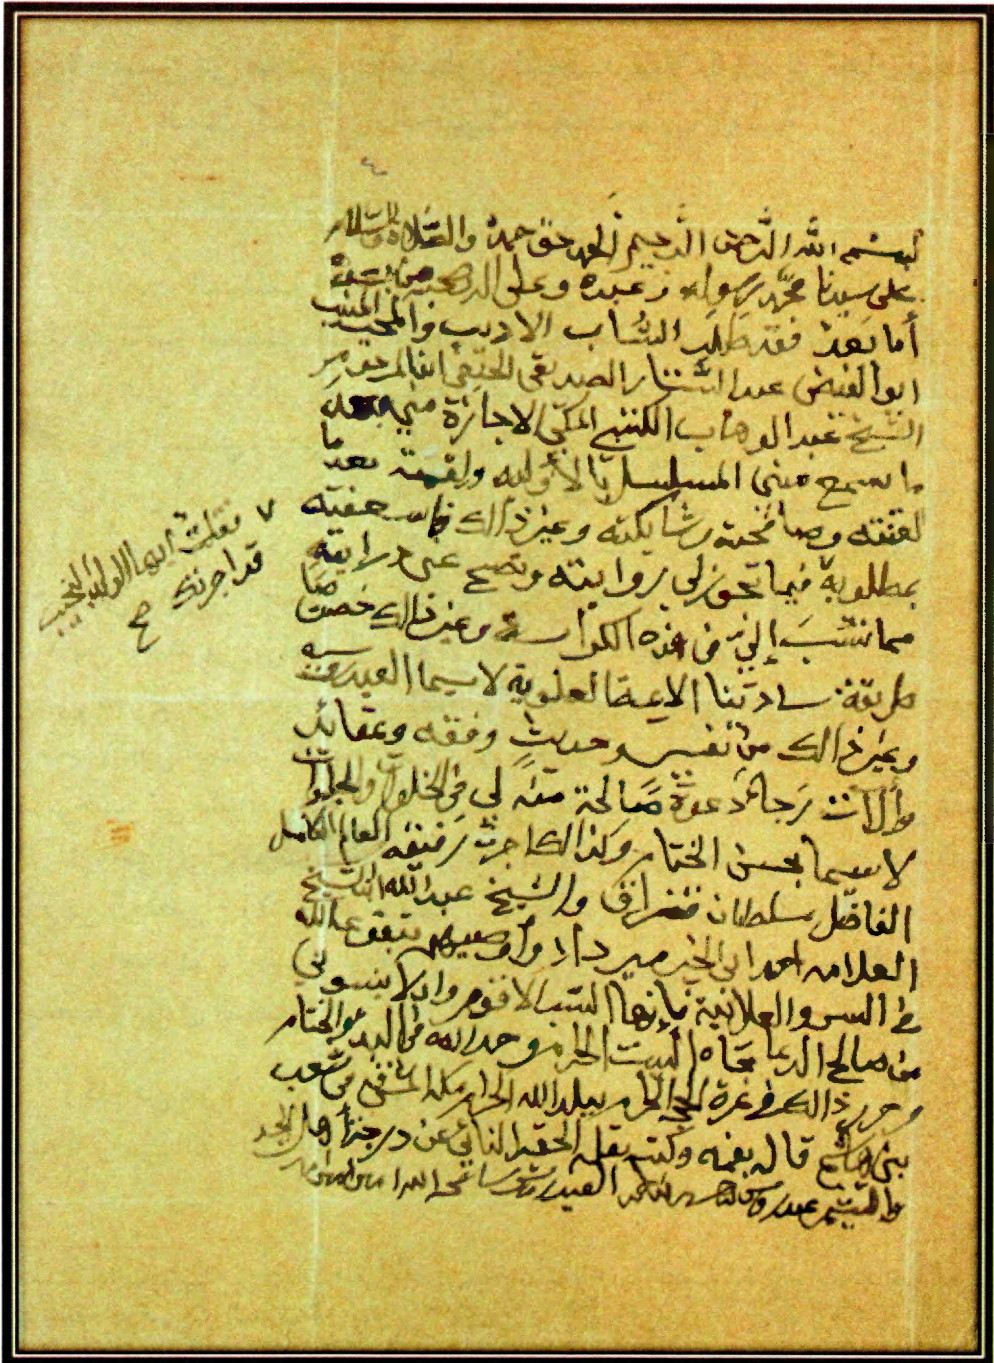 بسم الله الرحمن الرحيم الحمد لله حق حمده والصلاة والسلام
على سيدنا محمد رسوله وعبده وعلى اله وصحبه من بعده
أما بعد فقد طلب الشاب الاديب والمحب المنيب
ابو الفيض عبد الستار الصديقي الحنفي ابن المرحوم
الشيخ عبد الوهاب الكتبي المكي الاجازة مني بعد
ما سمع مني المسلسل بالأوليه ولقمته بعد ما
لقنته وصافحته وشابكته وغير ذالك فاسعفته
بمطلوبه فيما تجوز لي روايته وتصح عني درايته
مما نسب إلي في هذه الكراسة وغير ذالك خصوصا
طريقة ساداتنا الايمة العلوية لاسيما العيدروسية
وغير ذالك من تفسير وحديث وفقه وعقائد
وألات رجاء دعوة صالحة منه لي في الخلوات والجلوات
لاسيما بحسن الختام وكذالك اجزت رفيقه العالم الكامل
الفاضل سلطان والشيخ عبد الله ابن الشيخ
العلامه احمد ابي الخير ميرداد وأوصيهم بتقوى الله
في السر والعلانية فإنها السبب الاقوم وان لا ينسوني
من صالح الدعا تجاه البيت الحرام وحد الله في البدء والختام
وحرر ذالك في غرة الحرام ببلد الله الحرام مكة المشرفة في شعب
بني هاشم قال بفمه وكتبه بقلمه الحقير النائي عن درجة أهل الجد
والتشمير عيدروس العيدروس سامحه الله امين
٧ فقلت أيها الولد النجيب
قد اجزتك صح